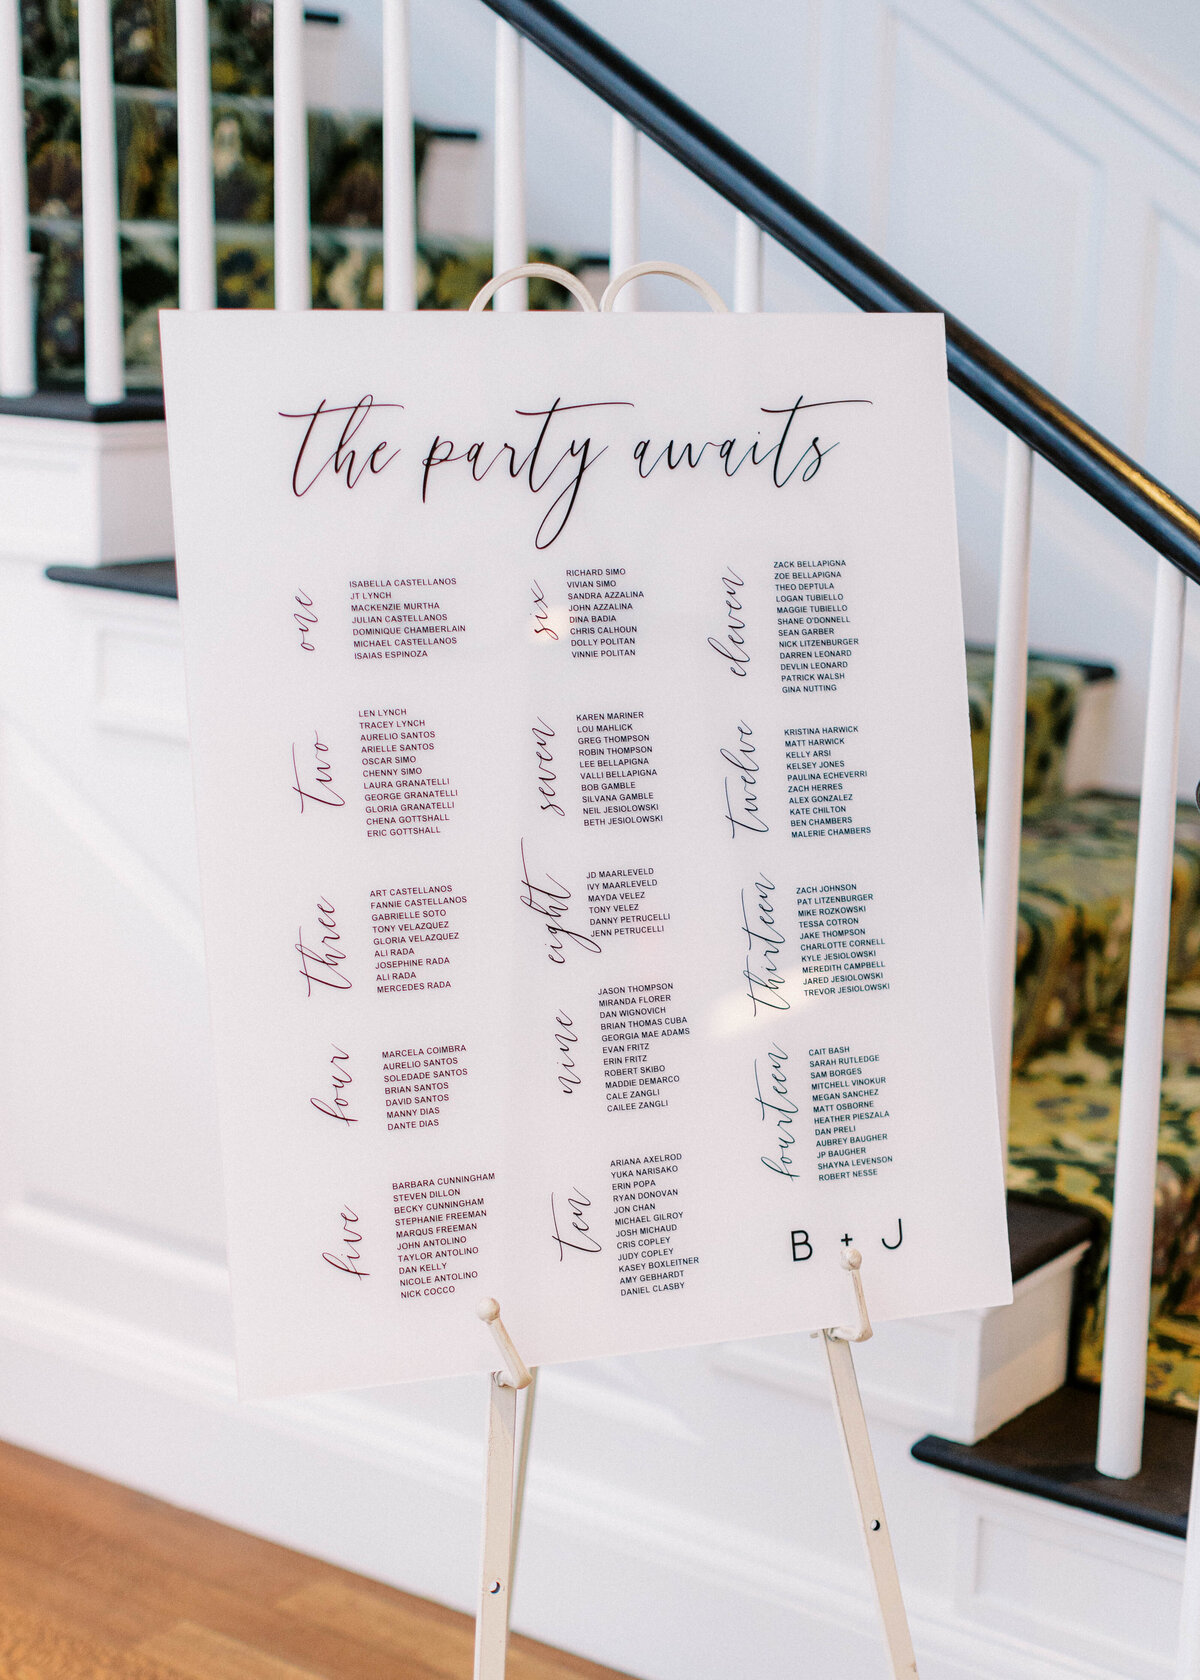 the party awaits
one
ISABELLA CASTELLANOS
JT LYNCH
MACKENZIE MURTHA
JULIAN CASTELLANOS
DOMINIQUE CHAMBERLAIN
MICHAEL CASTELLANOS
ISAIAS ESPINOZA
two
LEN LYNCH
TRACEY LYNCH
AURELIO SANTOS
ARIELLE SANTOS
OSCAR SIMO
CHENNY SIMO
LAURA GRANATELLI
GEORGE GRANATELLI
GLORIA GRANATELLI
CHENA GOTTSHALL
ERIC GOTTSHALL
three
ART CASTELLANOS
FANNIE CASTELLANOS
GABRIELLE SOTO
TONY VELAZQUEZ
GLORIA VELAZQUEZ
ALI RADA
JOSEPHINE RADA
ALI RADA
MERCEDES RADA
four
MARCELA COIMBRA
AURELIO SANTOS
SOLEDADE SANTOS
BRIAN SANTOS
DAVID SANTOS
MANNY DIAS
DANTE DIAS
five
BARBARA CUNNINGHAM
STEVEN DILLON
BECKY CUNNINGHAM
STEPHANIE FREEMAN
MARQUS FREEMAN
JOHN ANTOLINO
TAYLOR ANTOLINO
DAN KELLY
NICOLE ANTOLINO
NICK COCCO
six
RICHARD SIMO
VIVIAN SIMO
SANDRA AZZALINA
JOHN AZZALINA
DINA BADIA
CHRIS CALHOUN
DOLLY POLITAN
VINNIE POLITAN
seven
KAREN MARINER
LOU MAHLICK
GREG THOMPSON
ROBIN THOMPSON
LEE BELLAPIGNA
VALLI BELLAPIGNA
BOB GAMBLE
SILVANA GAMBLE
NEIL JESIOLOWSKI
BETH JESIOLOWSKI
eight
JD MAARLEVELD
IVY MAARLEVELD
MAYDA VELEZ
TONY VELEZ
DANNY PETRUCELLI
JENN PETRUCELLI
nine
JASON THOMPSON
MIRANDA FLORER
DAN WIGNOVICH
BRIAN THOMAS CUBA
GEORGIA MAE ADAMS
EVAN FRITZ
ERIN FRITZ
ROBERT SKIBO
MADDIE DEMARCO
CALE ZANGLI
CAILEE ZANGLI
ten
ARIANA AXELROD
YUKA NARISAKO
ERIN POPA
RYAN DONOVAN
JON CHAN
MICHAEL GILROY
JOSH MICHAUD
CRIS COPLEY
JUDY COPLEY
KASEY BOXLEITNER
AMY GEBHARDT
DANIEL CLASBY
eleven
ZACK BELLAPIGNA
ZOE BELLAPIGNA
THEO DEPTULA
LOGAN TUBIELLO
MAGGIE TUBIELLO
SHANE O'DONNELL
SEAN GARBER
NICK LITZENBURGER
DARREN LEONARD
DEVLIN LEONARD
PATRICK WALSH
GINA NUTTING
twelve
KRISTINA HARWICK
MATT HARWICK
KELLY ARSI
KELSEY JONES
PAULINA ECHEVERRI
ZACH HERRES
ALEX GONZALEZ
KATE CHILTON
BEN CHAMBERS
MALERIE CHAMBERS
thirteen
ZACH JOHNSON
PAT LITZENBURGER
MIKE ROZKOWSKI
TESSA COTRON
JAKE THOMPSON
CHARLOTTE CORNELL
KYLE JESIOLOWSKI
MEREDITH CAMPBELL
JARED JESIOLOWSKI
TREVOR JESIOLOWSKI
fourteen
CAIT BASH
SARAH RUTLEDGE
SAM BORGES
MITCHELL VINOKUR
MEGAN SANCHEZ
MATT OSBORNE
HEATHER PIESZALA
DAN PRELI
AUBREY BAUGHER
JP BAUGHER
SHAYNA LEVENSON
ROBERT NESSE
B + J